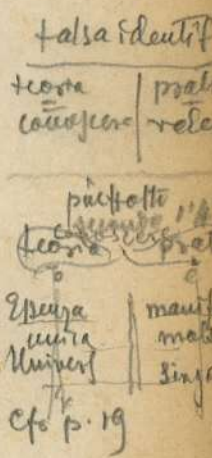 falsa identif
teoria prat
conoscere vole
piuttosto
secondo l'
teoria prat
è è
Essenza manif
unica mol
Univers singo
Cfr p. 19